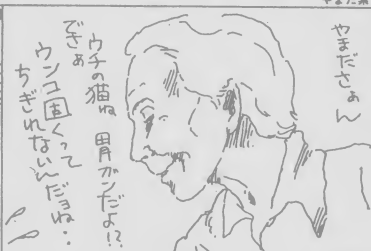 やまださぁん
ウチの猫ね 胃ガンだよ!?
でさぁ
ウンコ固くって
ちぎれないんだよね・・